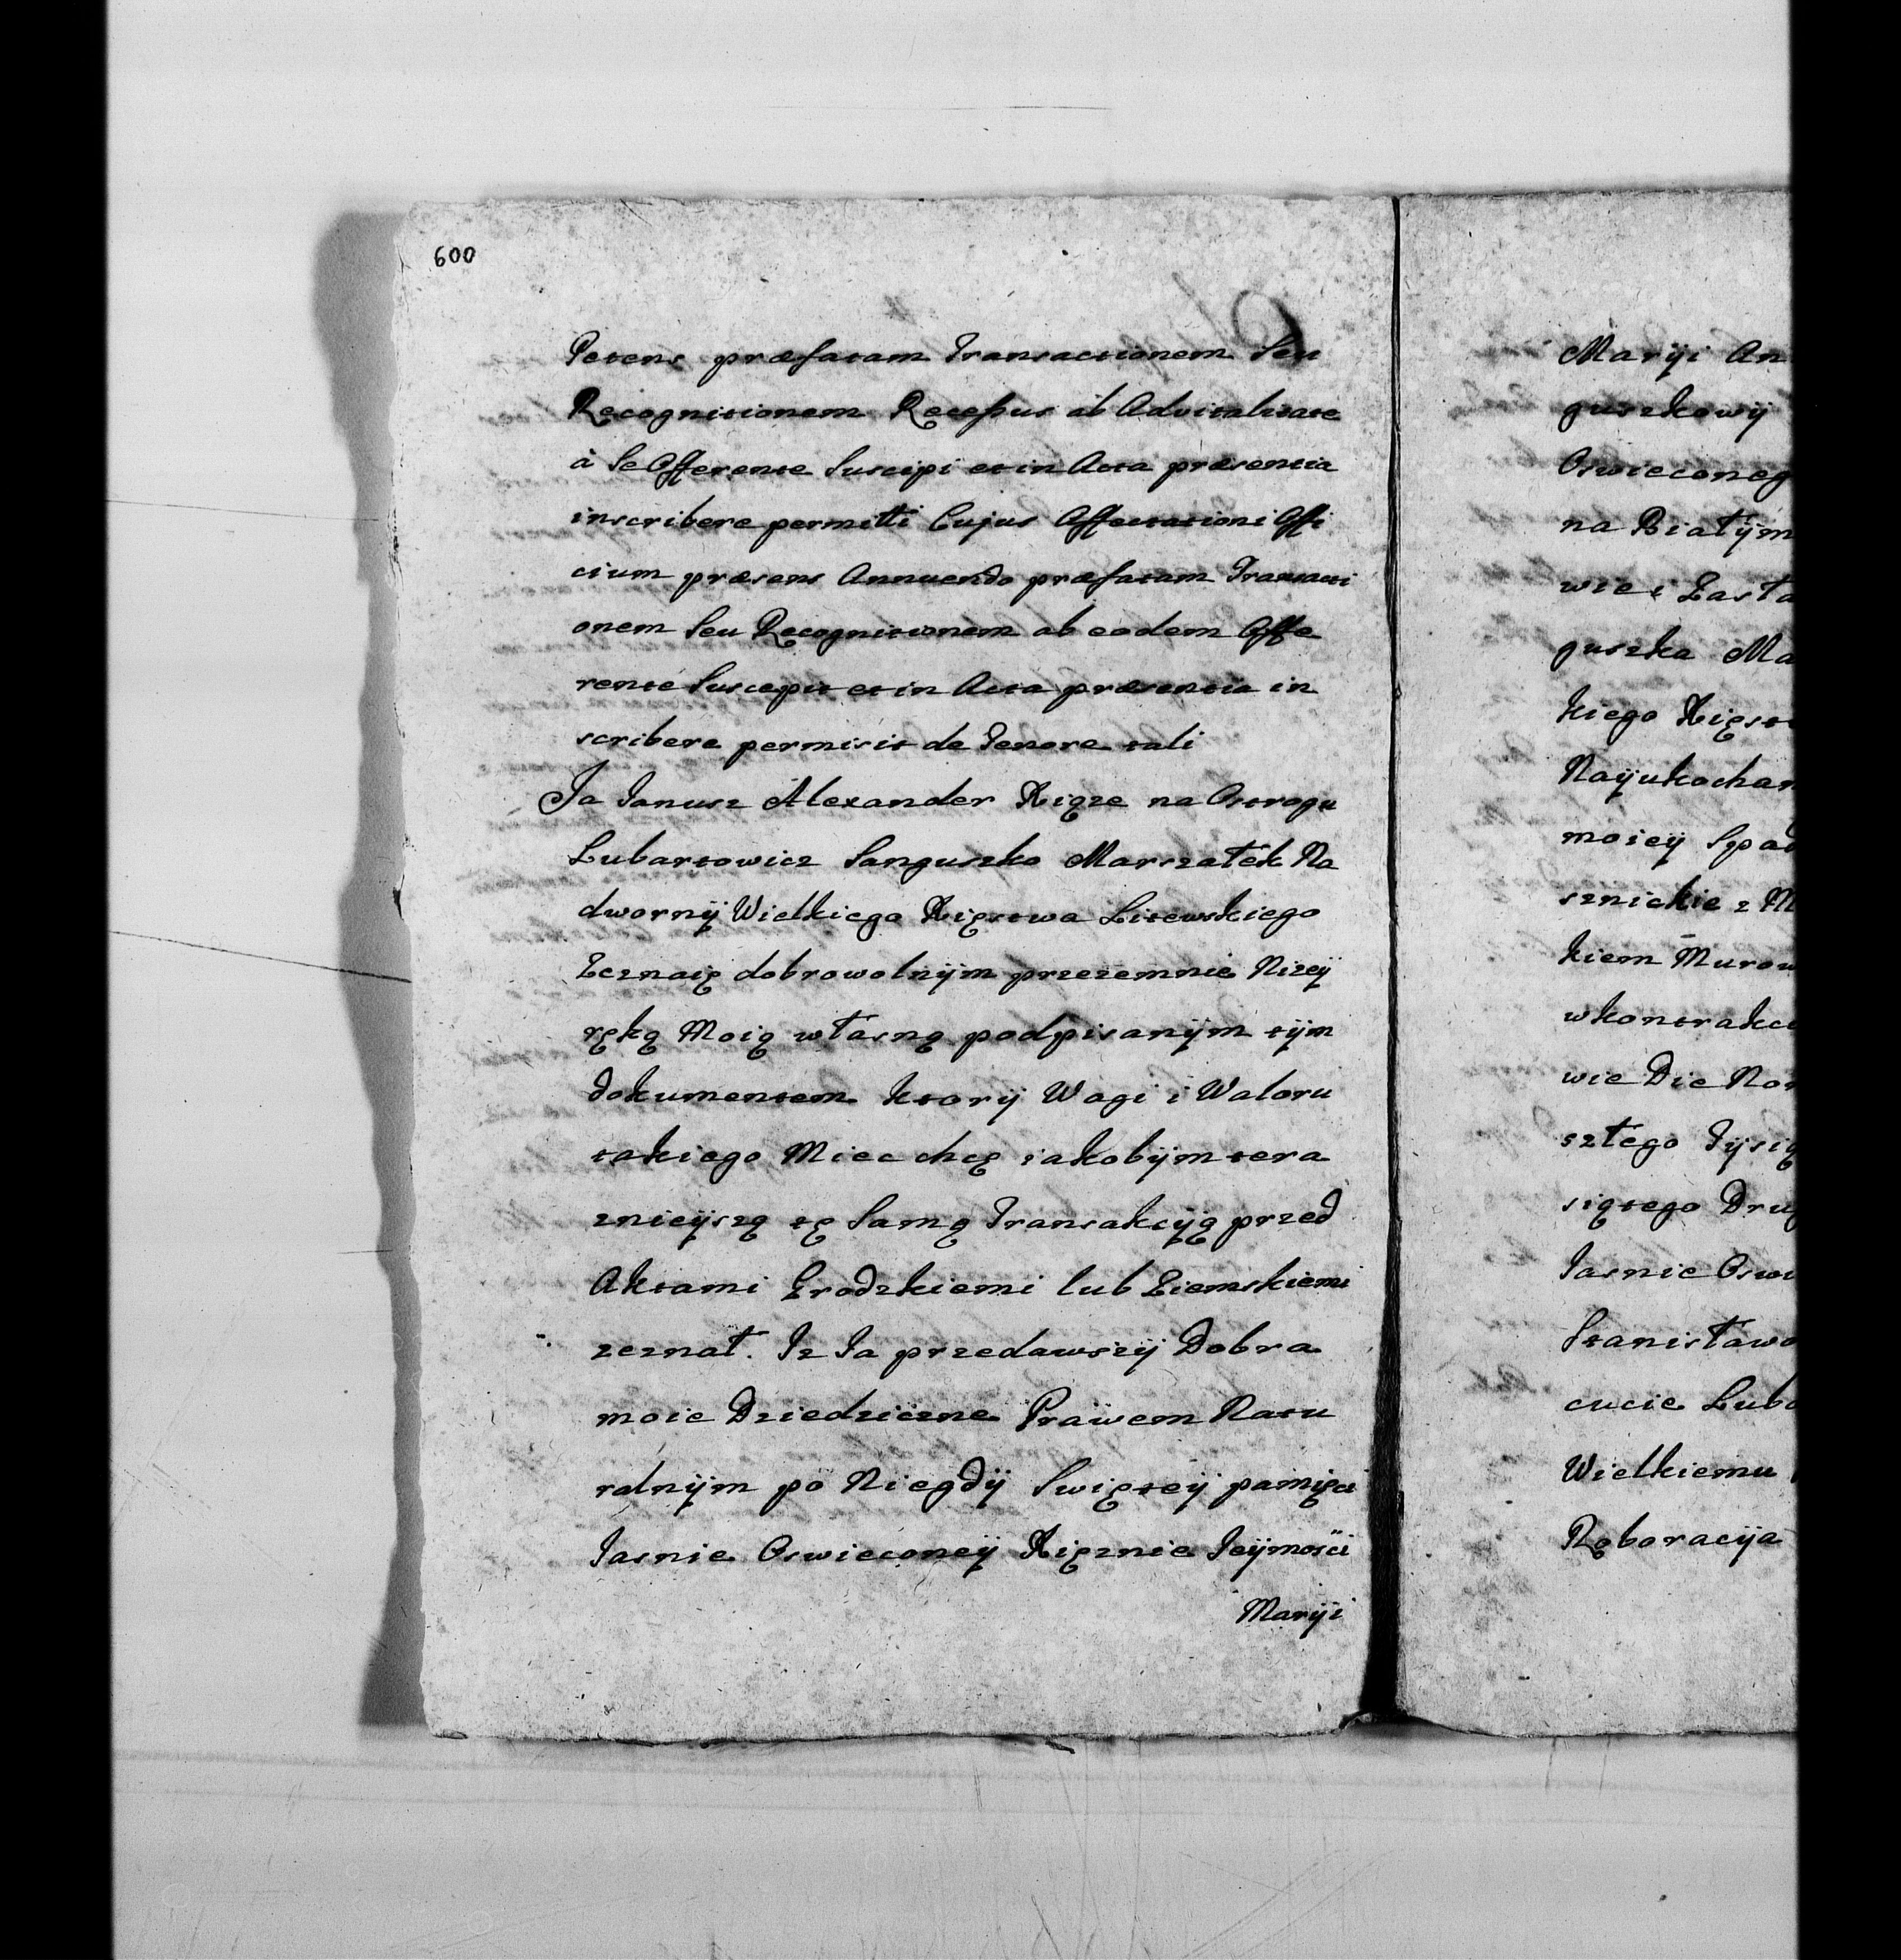 600
Petens præfatam Transactionem Seu
Recognitionem Recessus ab Advitalitate
à Se Offerente Suscipi et in Acta præsentia
inscribere permitti Cujus Affectationi Offi
cium præsens Annuendo præfatam Transacti
onem Seu Recognitionem ab eodem Offe
rente Suscepit et in Acta præsentia in
scribere permisit de Tenore tali
Ja Janusz Alexander Xiąże na Ostrogu
Lubartowicz Sanguszko Marszałek Na
dwornÿ Wielkiego Xięstwa Litewskiego
Zeznaię dobrowolnÿm przezemnie Niżeÿ
ręką Moią własną podpisanÿm tÿm
dokumentem ktorÿ Wagi i Waloru
takiego Miec chcę iakobÿm tera
znieÿszą tę Samą Transakcÿą przed
Aktami Grodzkiemi lub Ziemskiemi
zeznał. Iz Ja przedawszÿ Dobra
moie Dziedziczne Prawem Natu
ralnÿm po Niegdÿ Swięteÿ pamięci
Jasnie Oswieconeÿ Xiężnie Jeÿmości
Marÿi
Marÿi An
guszkowÿ
Oswieconeg
na Białÿm
wie i Zasła
guszka Ma
kiego Xięst
Naÿukochan
moieÿ Spad
sznickie z M
kiem Murow
wkontrakc
wie Die No
szłego Tÿsią
siątego Drug
Jasnie Oswi
Stanisławo
cucie Lubo
Wielkiemu
Roboracÿa